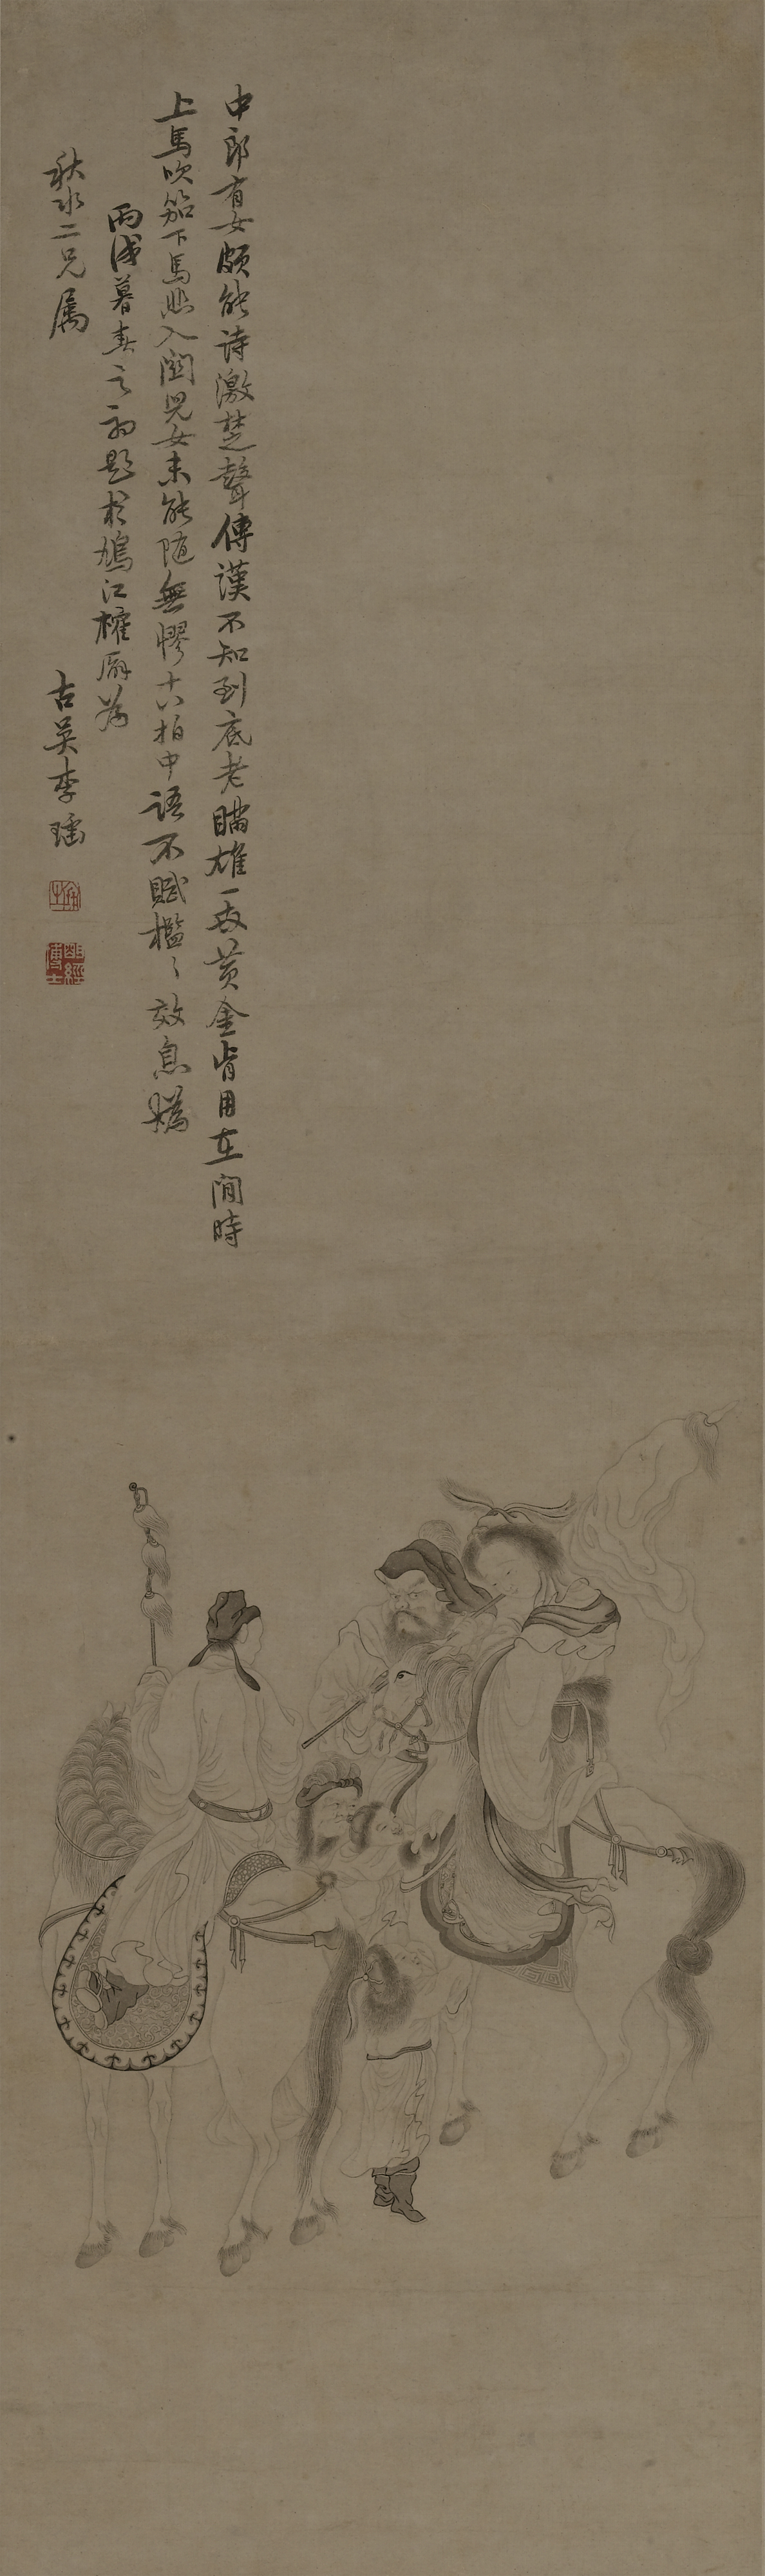 中郎有女頗能詩激楚聲傳漢不知到底老瞞雄一擲黃金肯用在閒時
上馬吹笳下馬悲入關兒女未能隨無憀十八拍中語不賦檻〻效息媯
丙戌暮春之初題於鳩江榷廨為
秋水二兄屬
古吳李瑤